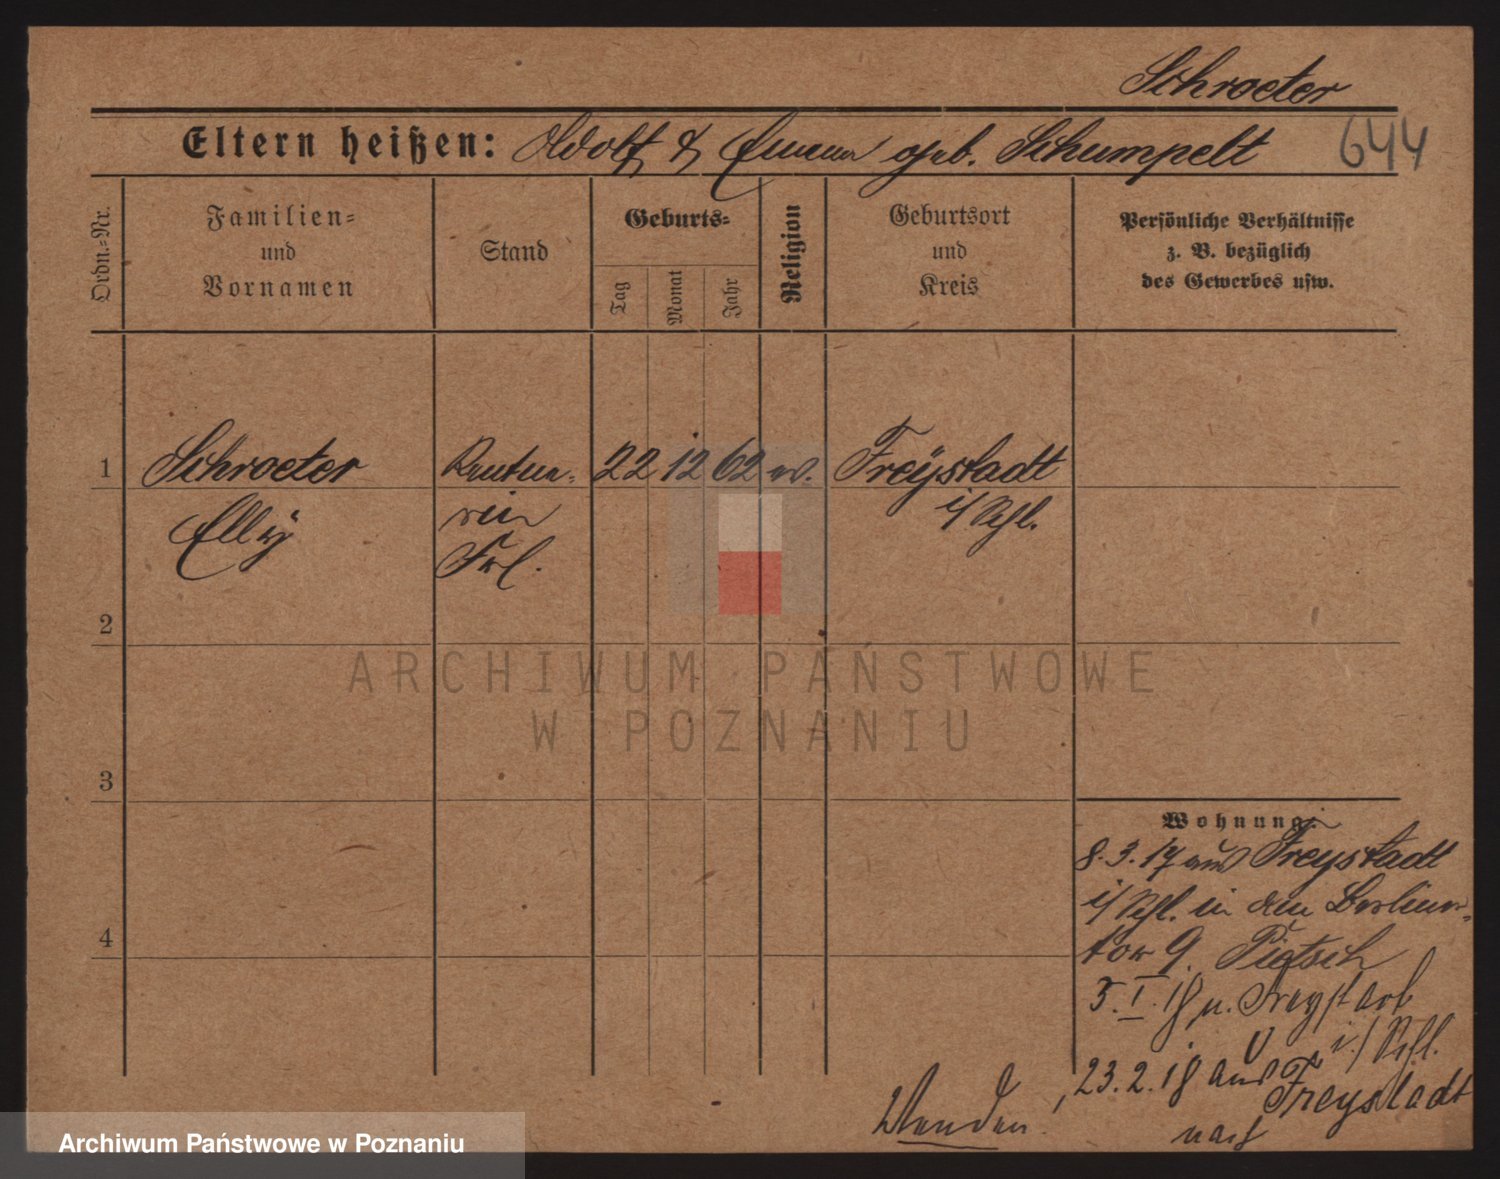 Schroeter
Eltern heißen: Adolf & Emma geb. Schumpelt 644
Ordn.-Nr.
Familien-
und
Vornamen
Stand
Geburts-
Tag
Monat
Jahr
Religion
Geburtsort
und
Kreis
Persönliche Verhältnisse
z. B. bezüglich
des Gewerbes usw.
1 Schroeter Rentne- 22 12 62 ev. Freÿstadt
Ellÿ rin i/Schl.
Frl.
2
3
4
Wohnung:
8.3.17 aus Freystadt
i/Schl. in den Berliner-
tor 9. Pietsch
3.I.18 n. Freystadt
i./Schl.
23.2.18 aus Freystadt
nach
Wenden!
ARCHIWUM PAŃSTWOWE
W POZNANIU
Archiwum Państwowe w Poznaniu